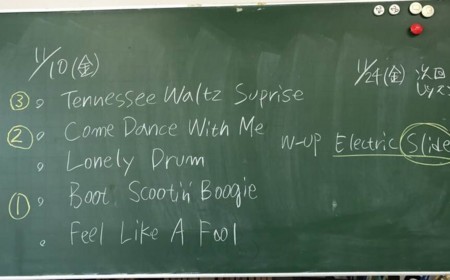 11/10(金)
③。Tennessee Waltz Suprise
②。Come Dance With Me
。Lonely Drum
①。Boot Scootin' Boogie
。Feel Like A Fool
11/24(金) 次回
レッスン
W-up Electric Slide